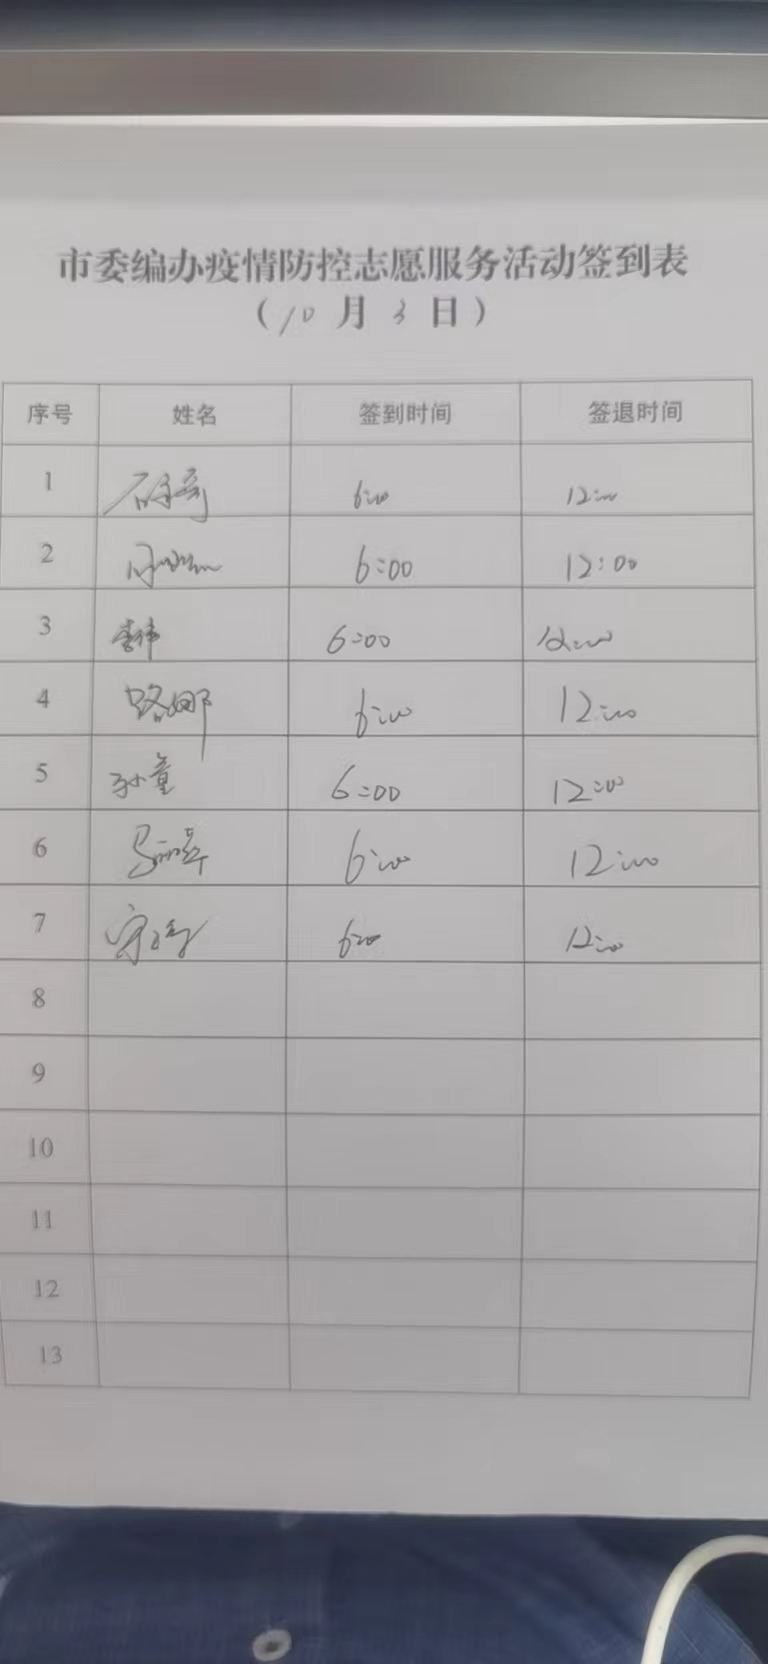 市委编办疫情防控志愿服务活动签到表
(10月3日)
序号 姓名 签到时间 签退时间
1 6:00 12:00
2 6:00 12:00
3 李伟 6:00 12:00
4 路娜 6:00 12:00
5 孙童 6:00 12:00
6 6:00 12:00
7 6:00 12:00
8
9
10
11
12
13